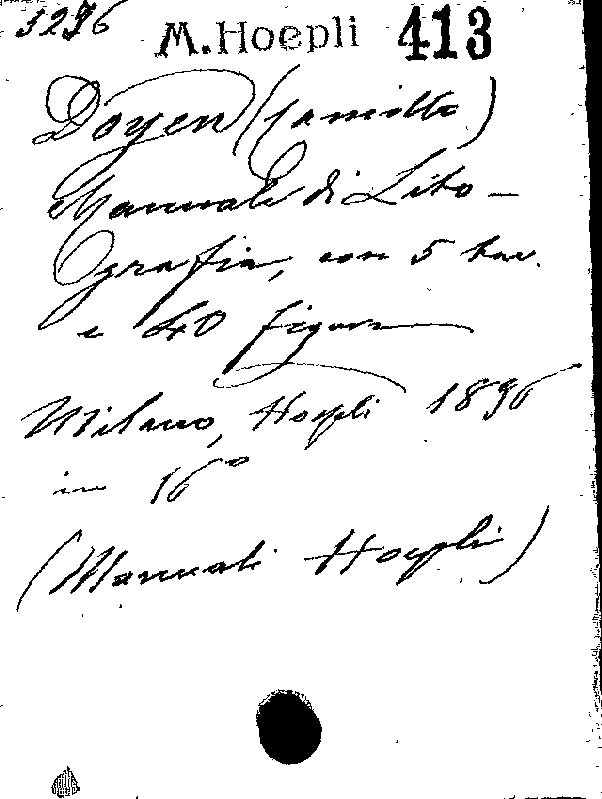 3296 M. Hoepli 413
Doyen (Camillo)
Manuale di Lito-
grafia, con 5 tav.
e 40 figure
Milano, Hoepli 1896
in 16º
(Manuali Hoepli)